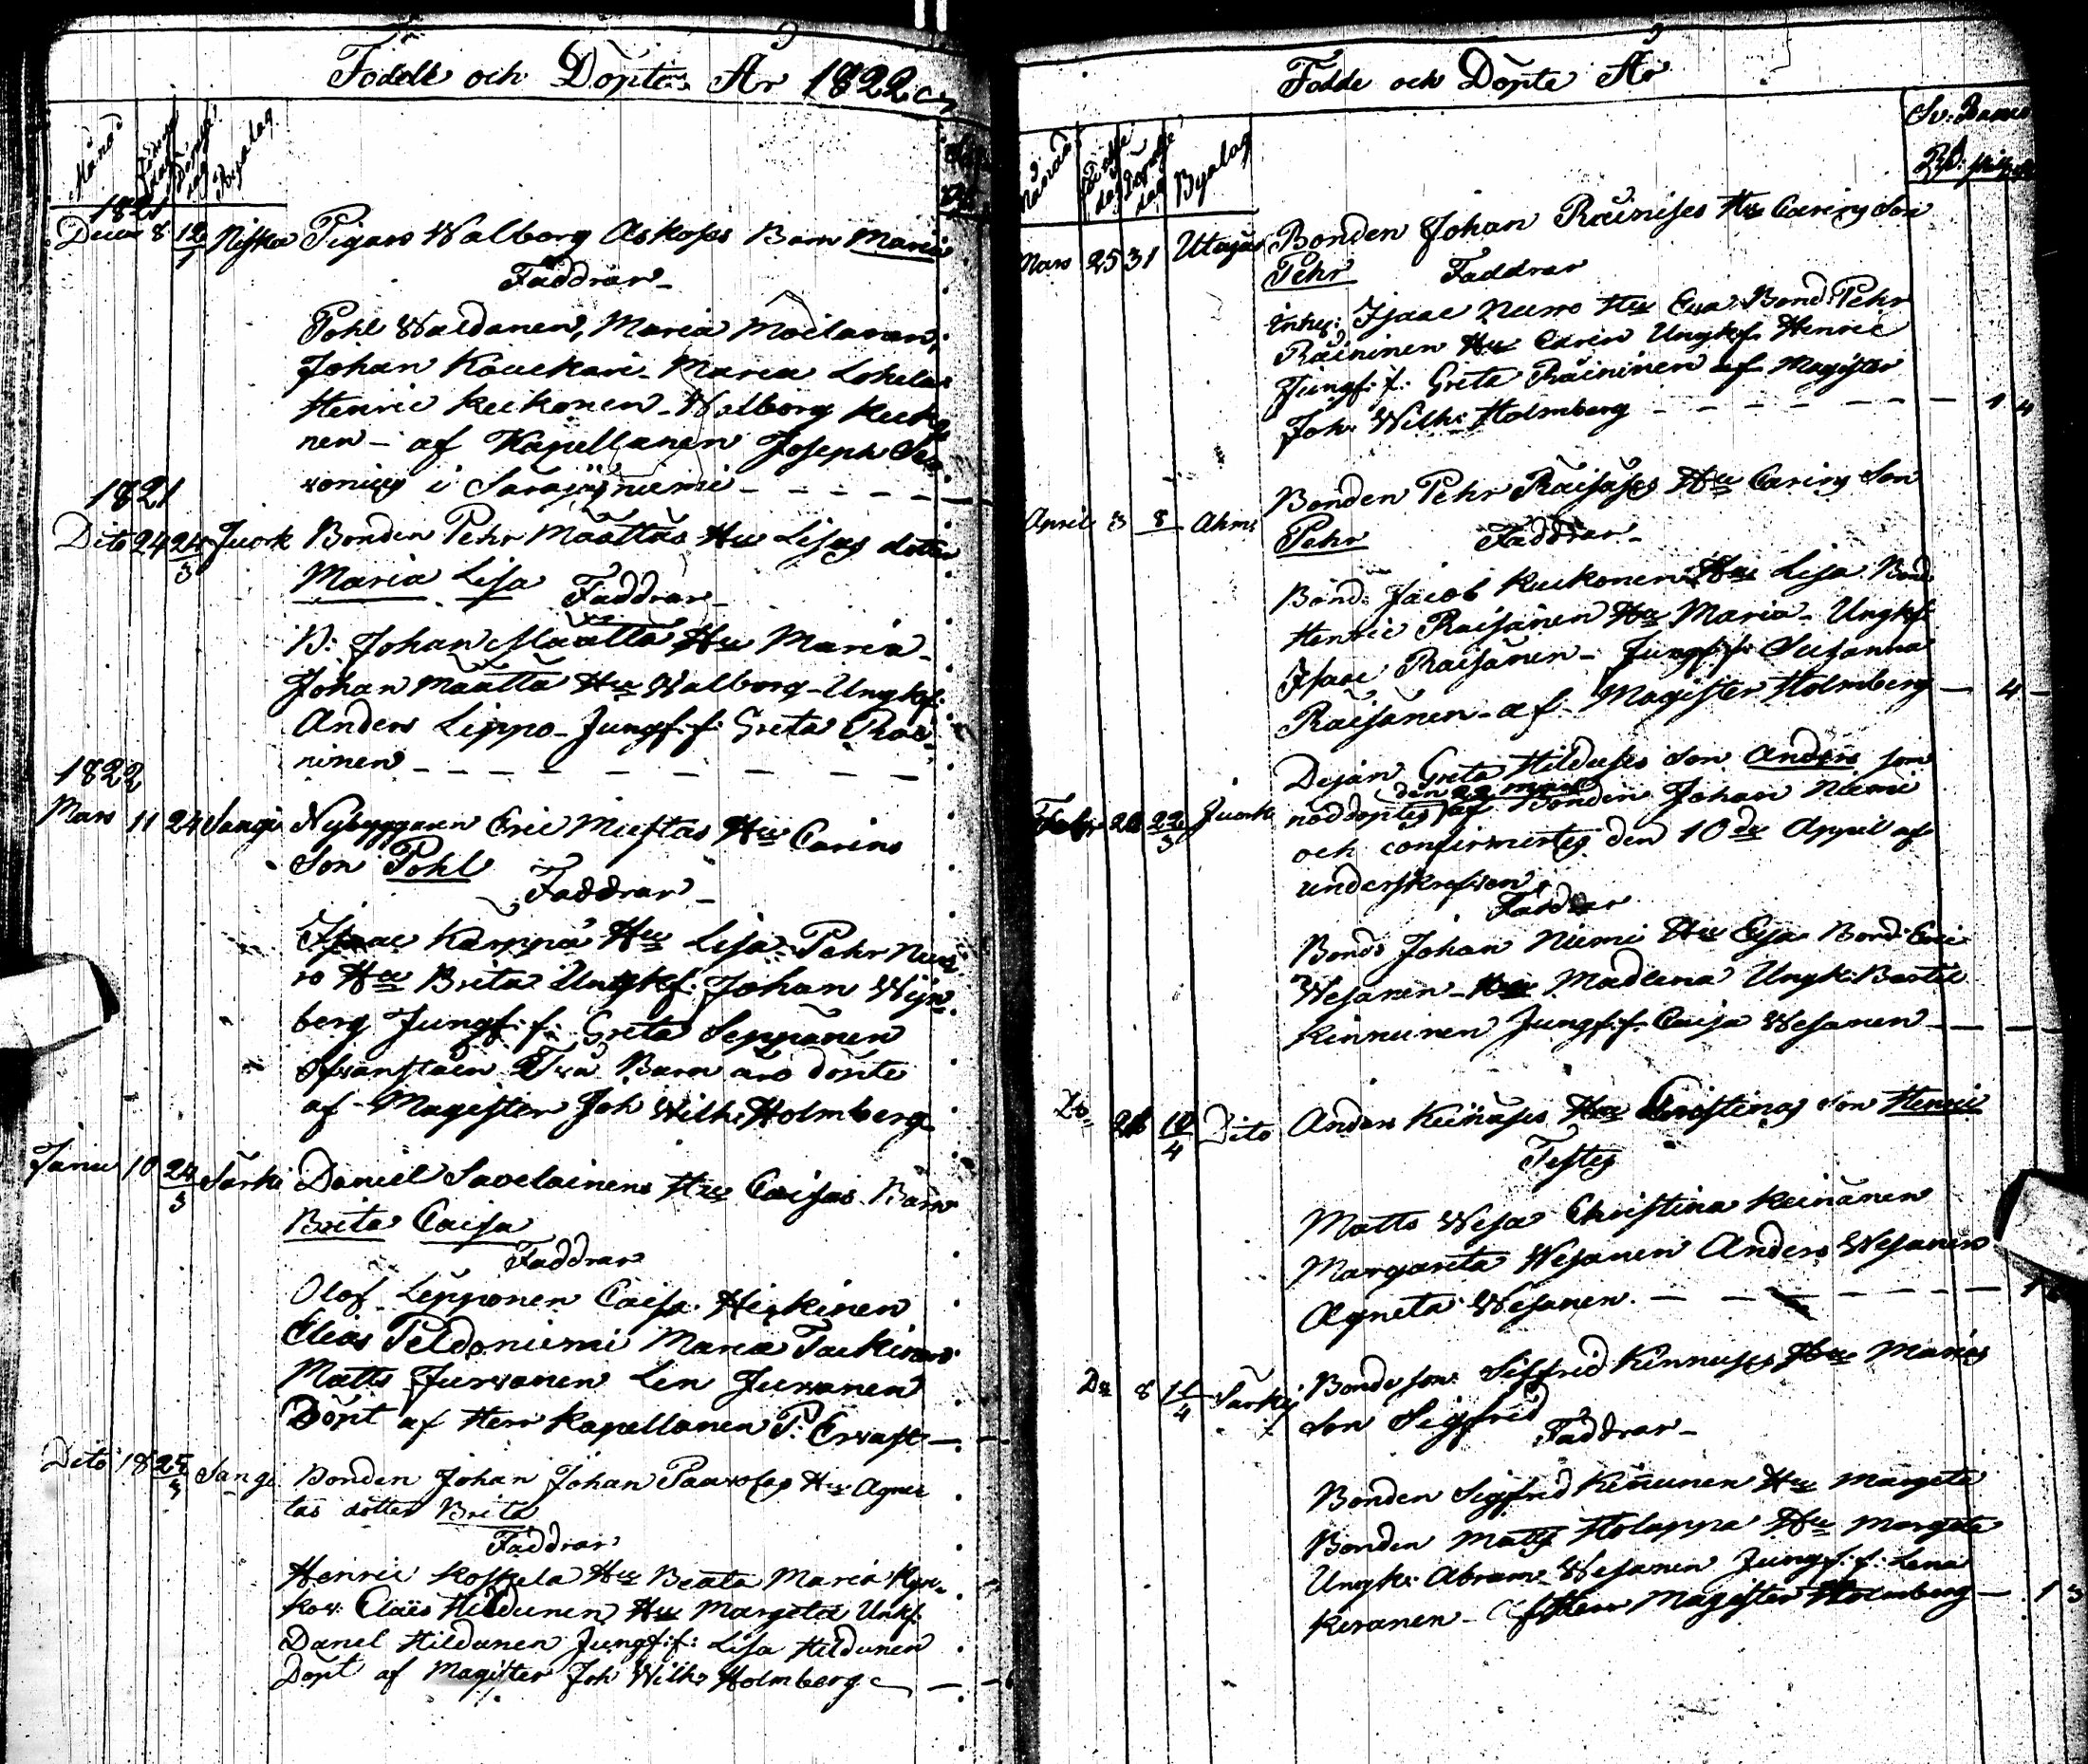 Födde och Döpte År 1822
Månad Födelse dag Döpelse dag Byalag
1821
Decem 8 12/1 Niska Pigans Walborg Askoses Barn Maria
Faddrar
Pohl Waldanen, Maria Moilanen,
Johan Kouckari - Maria Lohela
Henric Keikonen - Walborg Keiko
nen - af Kapellanen Joseph
i Sarajäniemi
1821
Dito 24 24/3 Juork Bonden Pehr Määttas Hu Lisas dotter
Maria Lisa Faddrar
B: Johan Määttä Hu Maria
Johan Määttä Hu Walborg - Ungkf:
Anders Lippo - Jungf: f: Greta
ninen
1822
Mars 11 24 Sangi Nybyggaren Eric Mustas Hu Carins
Son Pohl
Faddrar
Isaac Karppa Hu Lisa - Pehr Nuo
ro Hu Breta Ungkf: Johan Wijn
berg Jungf: f: Greta Seppänen
ofvanstaen Två Barn äro döpte
af Magister Joh Wilh: Holmberg
Janu 10 24/3 Särki Daniel Savelainens Hu Caisas Barn
Brita Caisa
Faddrar
Olof Lepponen Caisa Heikinen
Elias Peldoniemi Maria Tuckinen
Matts Jurvanen Len Jurvanen
Döpt af Herr Kapellanen P: Ervast
Dito 18 25/3 Sangi Bonden Johan Johan Paavolas Hu Agnee
tas dotter Brita
Faddrar
Henric Koskela Hu Beata Maria
Claes Hildunen Hu Margeta Unkf
Danel Hildunen Jungf: f: Lisa Hildunen
Döpt af Magister Joh Wilh: Holmberg
Födde och Döpte År
Sv: Banco
Månad Födelse dag Döpelse dag Byalag Rd:
Mars 25 31 Utajär Bonden Johan Räinises Hu Carins Son
Pehr Faddrar
Isaac Nuoro Hu Eva Bond: Pehr
Räininen Hu Carin Ungkf. Henric
Jungf: f: Greta Räininen af Magister
Joh: Wilh: Holmberg
April 3 8 Ahmi Bonden Pehr Räisäses Hu Carins Son
Pehr Faddrar
Bond: Jacob Kuikonen Hu Lisa Bond
Henric Räisänen Hu Maria - Ungkf.
Isaac Räisänen - Jungf: f: Susanna
Räisänen - af Magister Holmberg - 4 -
Dejan Greta Hilduses Son Anders som
den 22 Mars
Febr 22/3 Juork nöddöptes af Bonden Johan Niemi
och confirmertes den 10de Appril af
underskrefven
Faddrar
Bond: Johan Niemi Hu Bond: Eric
Wesanen - Hu Madlena Ungk: Bertil
Kinnunen Jungf: f: Caisa Wesanen
Do 10/4 Dito Anders Keinäses Hu Christinas Son Henric
Testes
Matts Wesa Christina Keinänen
Margareta Wesanen Anders Wesanen
Agneta Wesanen
Do 8 11/4 Särkij Bonde son: Siffrid Kinnuses Hu Marias
Son Sigfrid
Faddrar
Bonden Sigfrid Kinnunen Hu Margeta
Bonden Matts Holappa Hu Margeta
Ungk: Abram Wesanen Jungf: f: Lena
Keranen - af Herr Magister Holmberg - 1 3